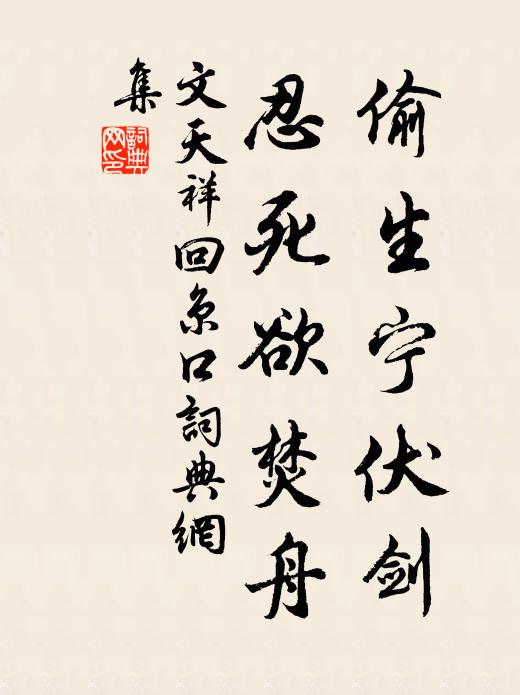 偷生宁伏剑
忍死欲焚舟
文天祥回京口詞典網
集
詞典
网印